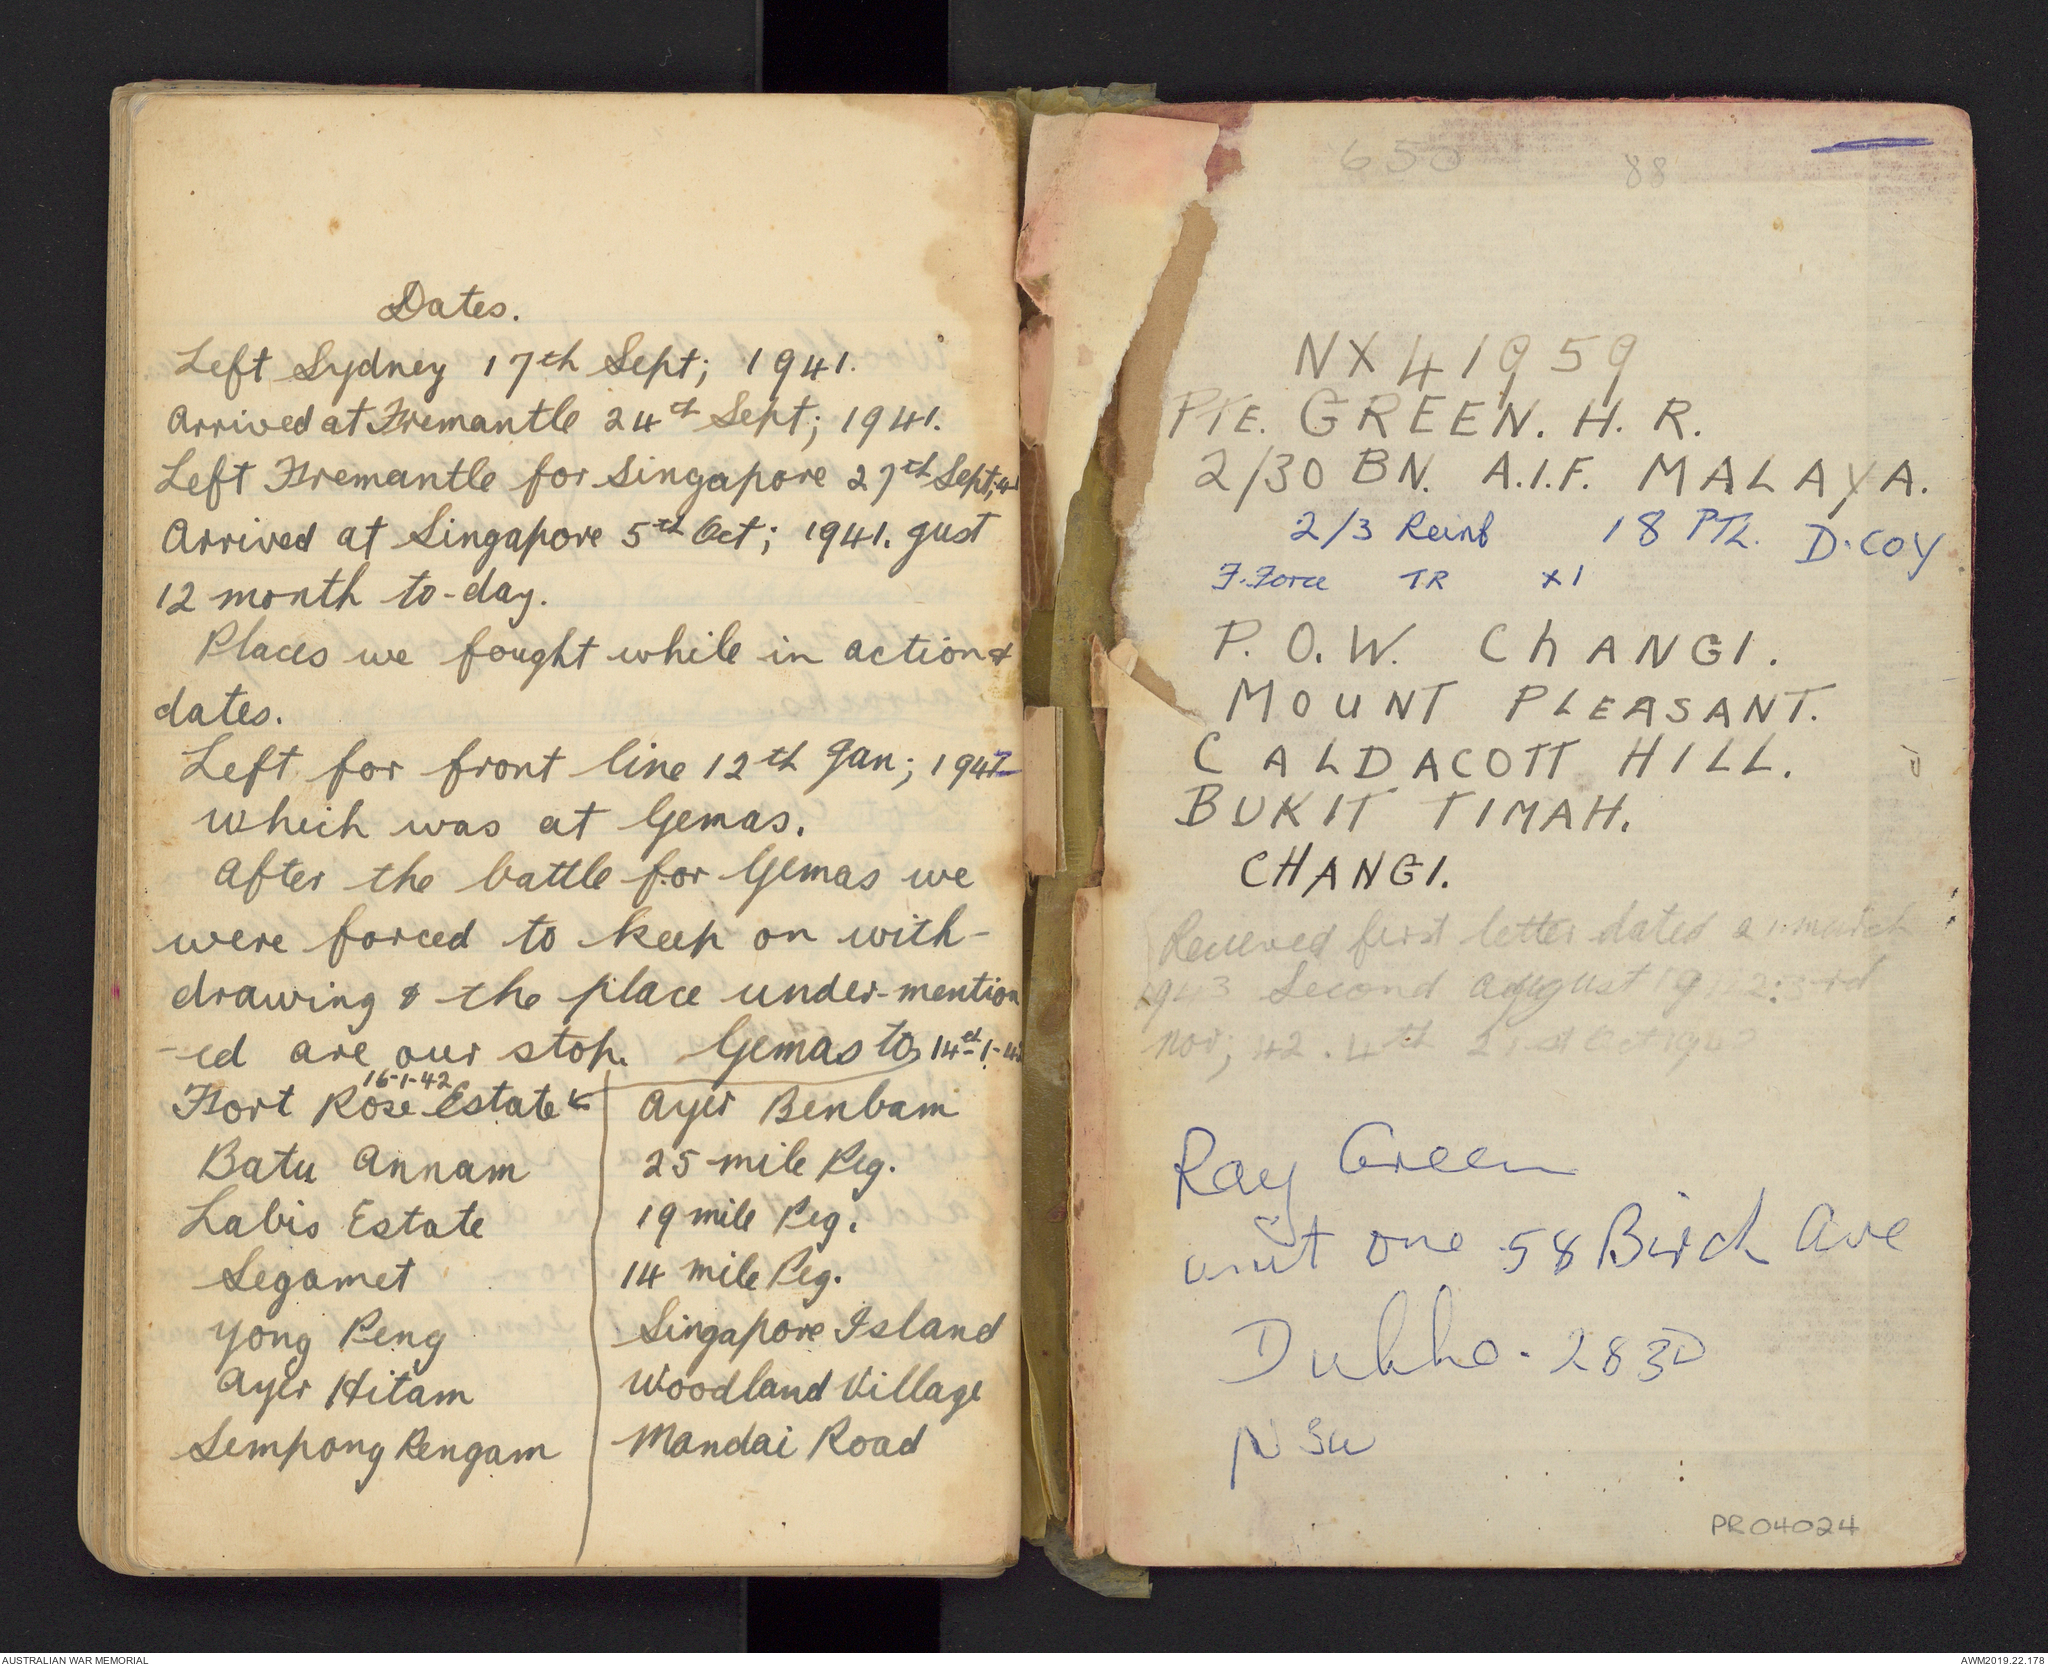 Dates.
Left Sydney 17th Sept; 1941.
Arrived at Fremantle 24th Sept; 1941.
Left Fremantle for Singapore 27th Sept; 41
Arrived at Singapore 5th Oct; 1941. just
12 month to-day.
Places we fought while in action &
dates.
Left for front line 12th Jan; 1942
which was at Gemas.
After the battle for Gemas we
were forced to keep on with-
drawing & the place under-mention
-ed are our stop. Gemas to 14th-1-42
16-1-42
Fort Rose Estate
Batu Annam
Labis Estate
Segamet
Yong Peng
Ayer Hitam
Sempong Rengam
Ayer Benbam
25 mile Peg.
19 mile Peg.
14 mile Peg.
Singapore Island
Woodland Village
Mandai Road
650 88
NX41959
PTE. GREEN. H. R.
2/30 BN. A.I.F. MALAYA.
2/3 Reinf 18 PTL. D. COY
F. Force TR X1
P.O.W. ChANGI.
MOUNT PLEASANT.
CALDACOTT HILL.
BUKIT TIMAH.
CHANGI.
Received first letter dated march
1943 Second August 1942: 3rd
Nov; 42. 4th 21st Oct 194
Ray Green
unit one 58 Birch Ave
Dubbo. 2830
NSW
PR04024
AUSTRALIAN WAR MEMORIAL
AWM2019.22.178